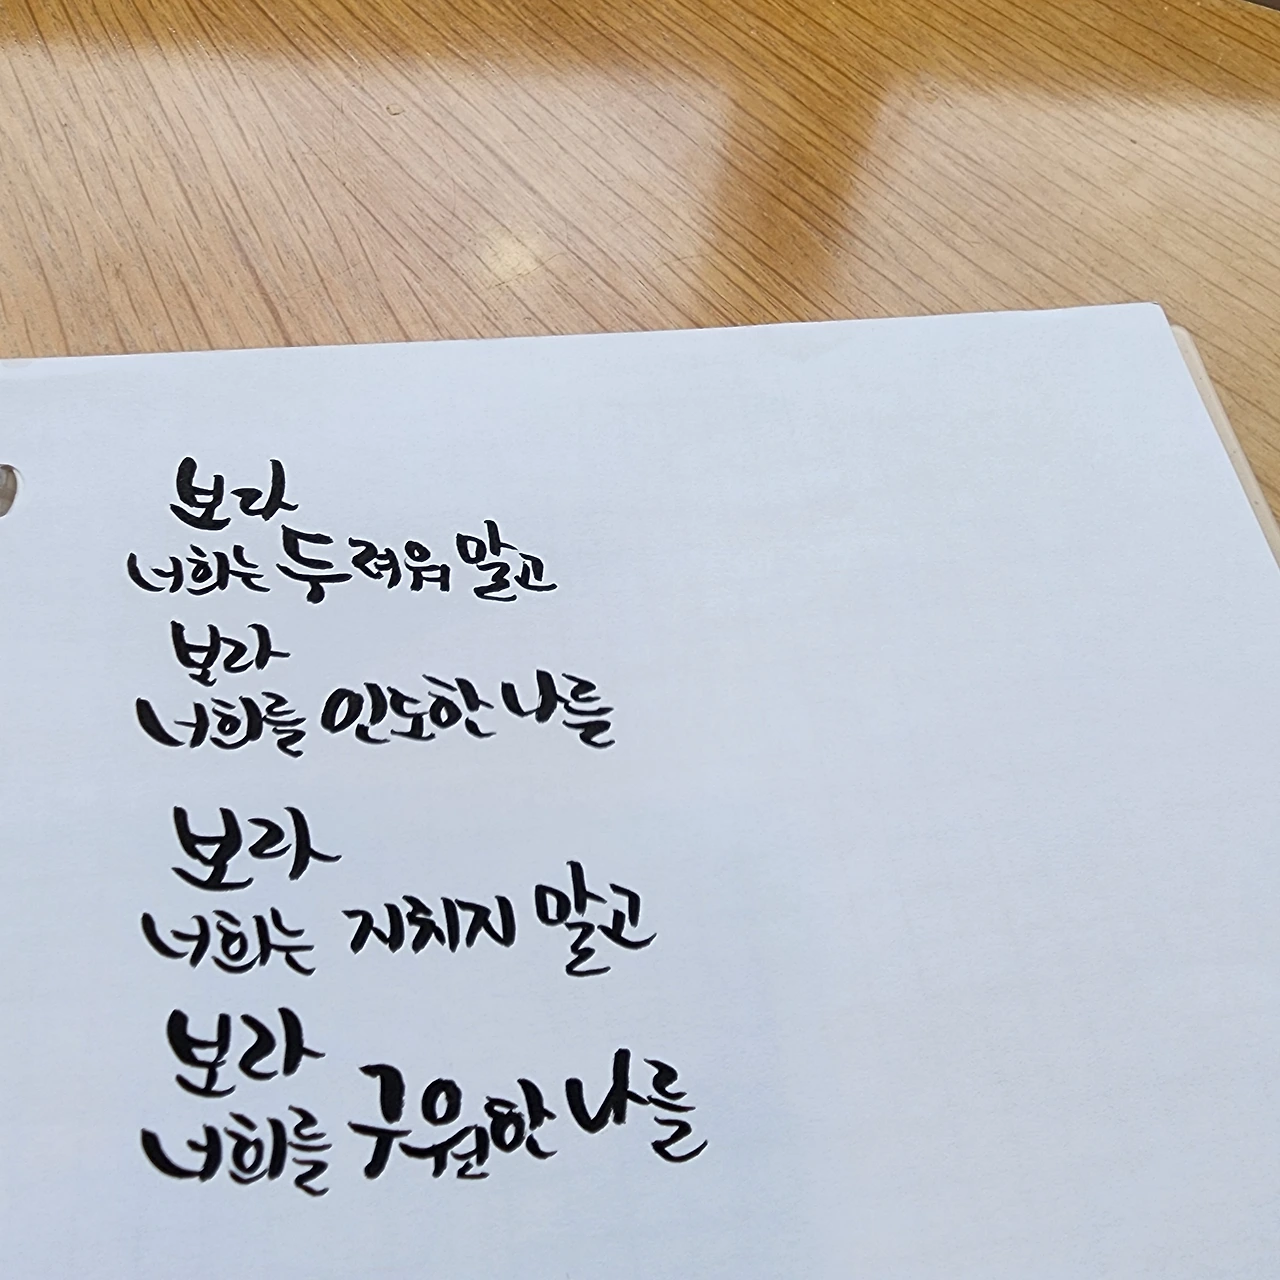 보라
너희는 두려워 말고
보라
너희를 인도한 나를
보라
너희는 지치지 말고
보라
너희를 구원한 나를